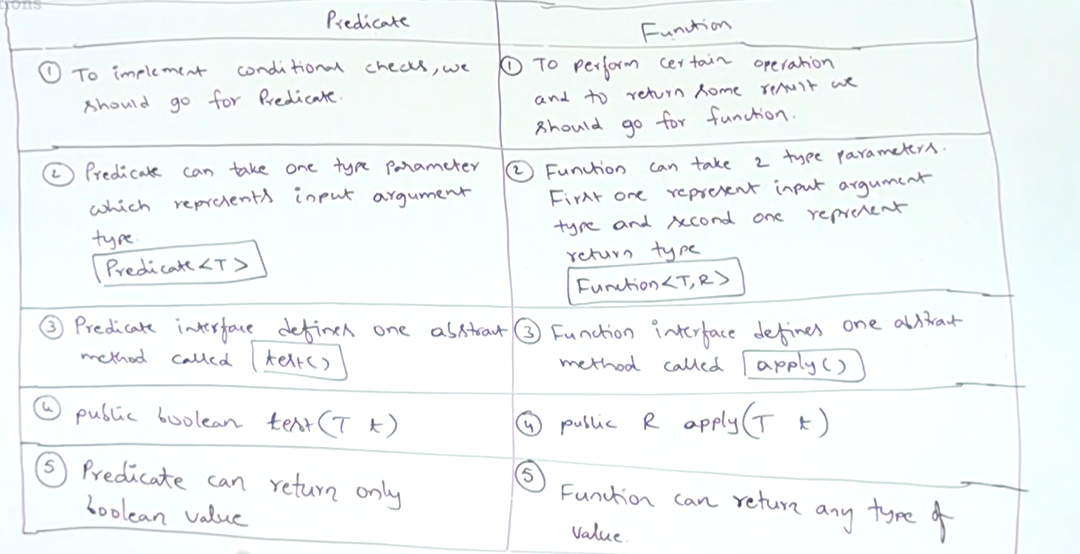 Predicate
Function
① To implement conditional checks, we
should go for Predicate.
① To perform certain operation
and to return some result we
should go for function.
② Predicate can take one type parameter
which represents input argument
type.
Predicate<T>
② Function can take 2 type parameters.
First one represent input argument
type and second one represent
return type
Function<T,R>
③ Predicate interface defines one abstract
method called test()
③ Function interface defines one abstract
method called apply()
④ public boolean test(T t)
④ public R apply(T t)
⑤ Predicate can return only
boolean value
⑤ Function can return any type of
value.